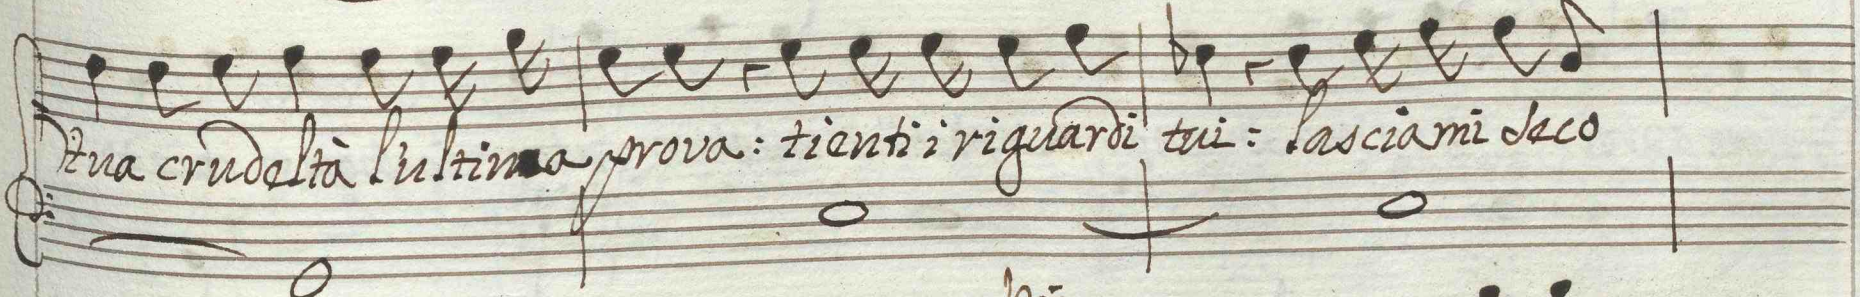 tua crudeltà l'ultima prova: tienti i riguardi tui: lasciami seco